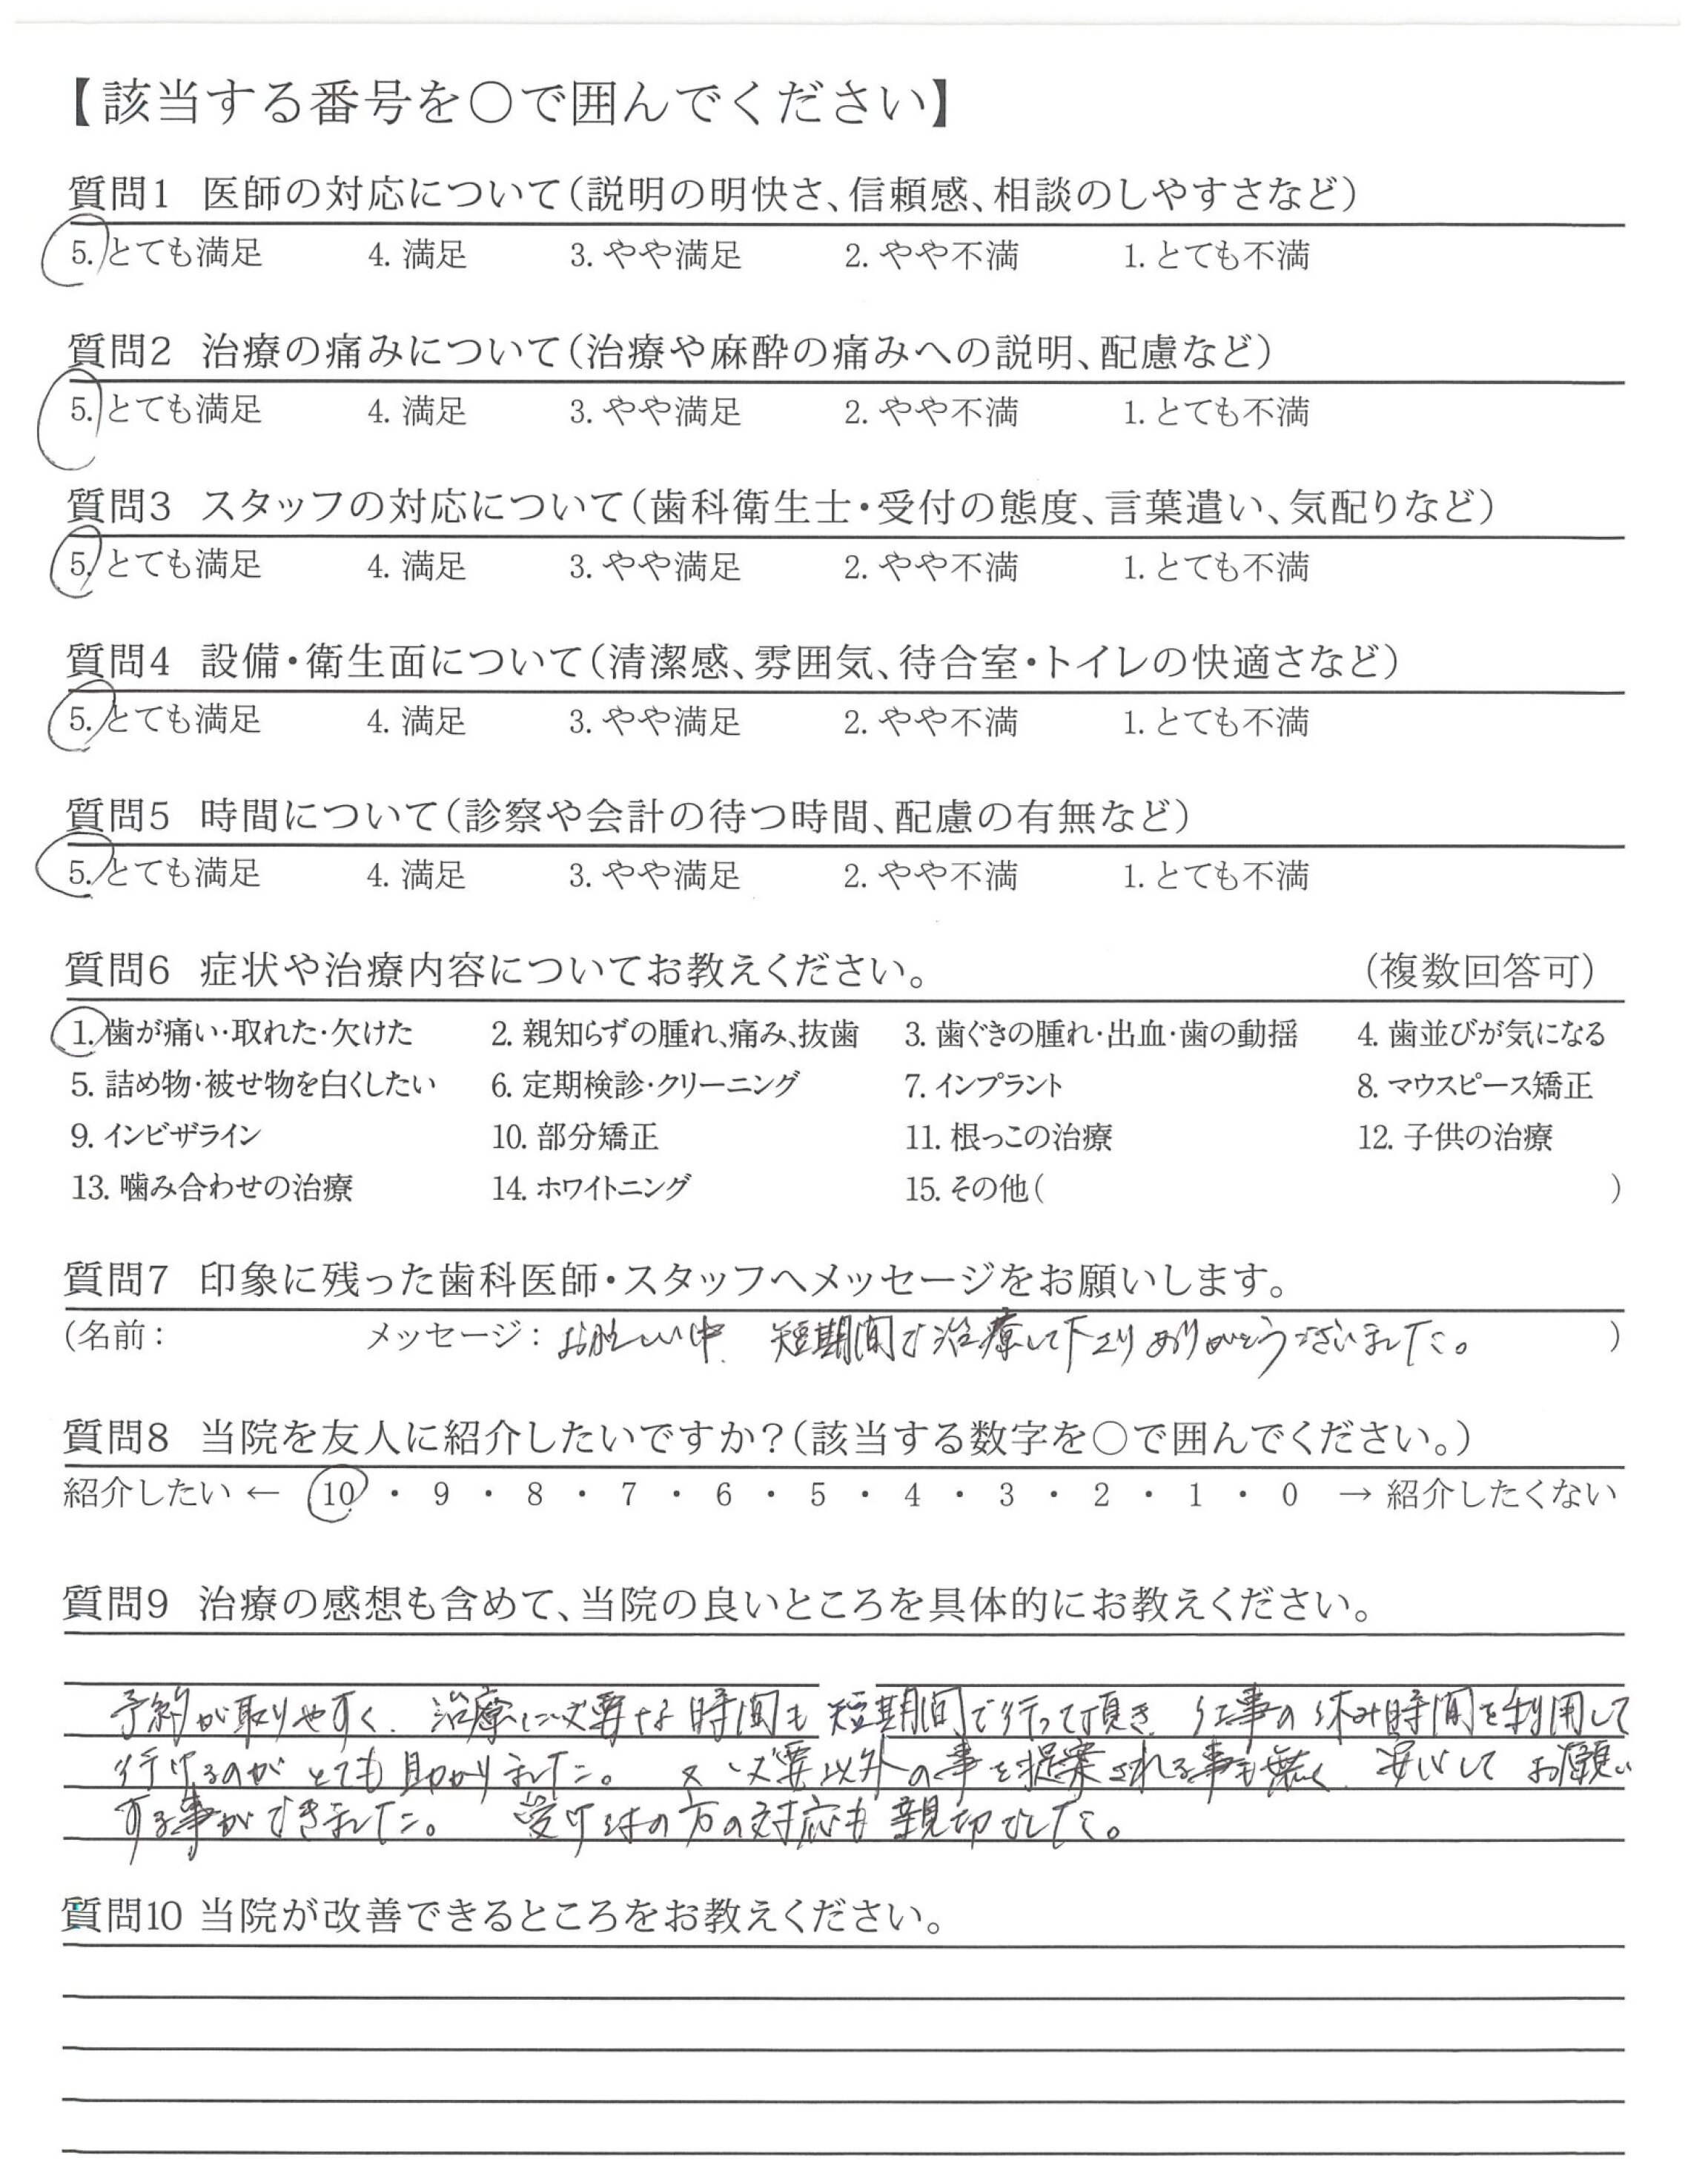 【該当する番号を○で囲んでください】
質問1 医師の対応について(説明の明快さ、信頼感、相談のしやすさなど)
5. とても満足 4. 満足 3. やや満足 2. やや不満 1. とても不満
質問2 治療の痛みについて(治療や麻酔の痛みへの説明、配慮など)
5. とても満足 4. 満足 3. やや満足 2. やや不満 1. とても不満
質問3 スタッフの対応について(歯科衛生士・受付の態度、言葉遣い、気配りなど)
5. とても満足 4. 満足 3. やや満足 2. やや不満 1. とても不満
質問4 設備・衛生面について(清潔感、雰囲気、待合室・トイレの快適さなど)
5. とても満足 4. 満足 3. やや満足 2. やや不満 1. とても不満
質問5 時間について(診察や会計の待つ時間、配慮の有無など)
5. とても満足 4. 満足 3. やや満足 2. やや不満 1. とても不満
質問6 症状や治療内容についてお教えください。 (複数回答可)
1. 歯が痛い・取れた・欠けた 2. 親知らずの腫れ、痛み、抜歯 3. 歯ぐきの腫れ・出血・歯の動揺 4. 歯並びが気になる
5. 詰め物・被せ物を白くしたい 6. 定期検診・クリーニング 7. インプラント 8. マウスピース矯正
9. インビザライン 10. 部分矯正 11. 根っこの治療 12. 子供の治療
13. 噛み合わせの治療 14. ホワイトニング 15. その他( )
質問7 印象に残った歯科医師・スタッフへメッセージをお願いします。
(名前: メッセージ: お忙しい中、短期間で治療して下さりありがとうございました。 )
質問8 当院を友人に紹介したいですか?(該当する数字を○で囲んでください。)
紹介したい ← 10 ・ 9 ・ 8 ・ 7 ・ 6 ・ 5 ・ 4 ・ 3 ・ 2 ・ 1 ・ 0 → 紹介したくない
質問9 治療の感想も含めて、当院の良いところを具体的にお教えください。
予約が取りやすく、治療に必要な時間も短期間で行って頂き、仕事の休み時間を利用して
行けるのがとても助かりました。 又、必要以外の事を提案される事も無く、安心してお願い
する事ができました。 受け付の方の対応も親切でした。
質問10 当院が改善できるところをお教えください。